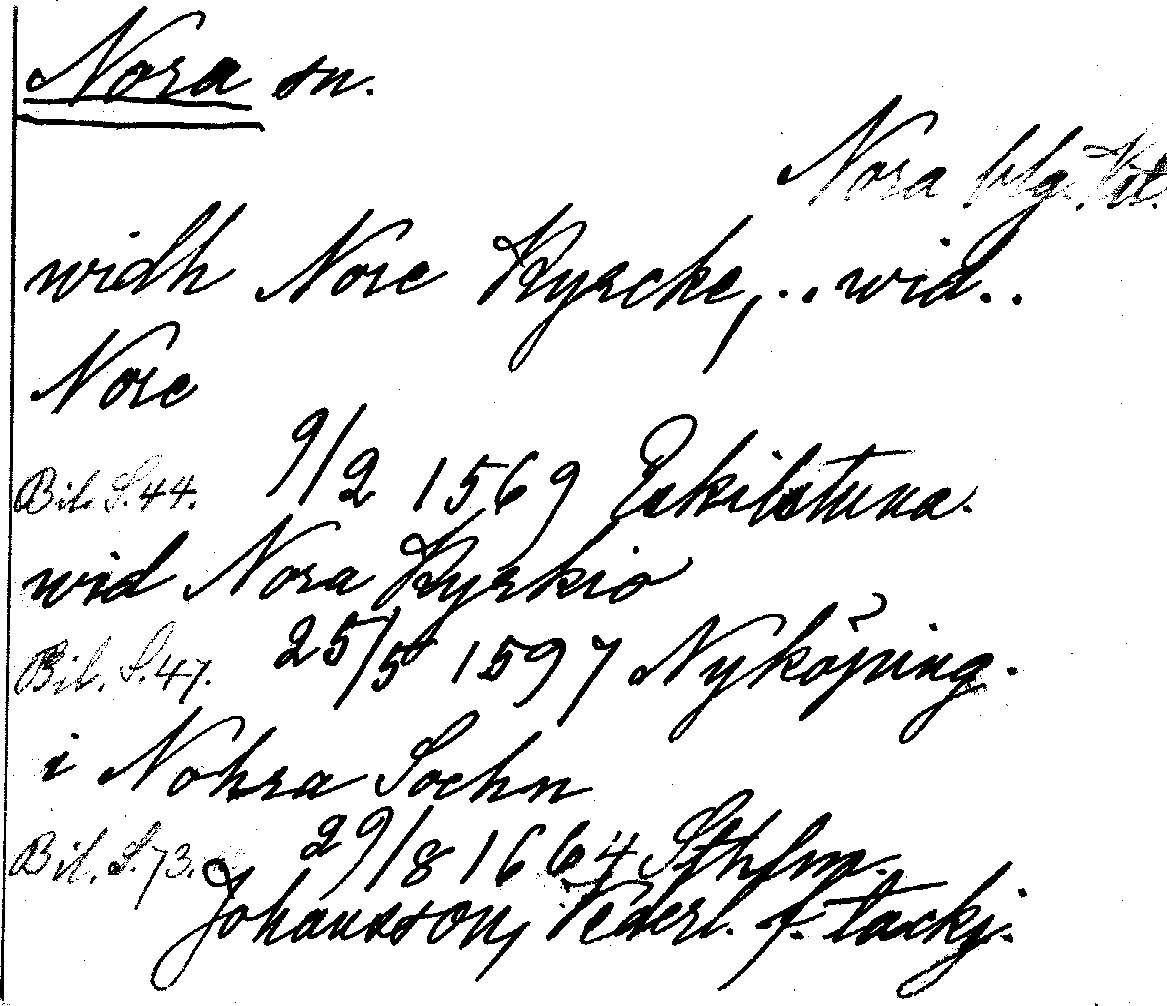 Nora sn.
Nora blg. Vst.
widh Nore Kyrcke, .. wid..
Nore
Bil. S. 44. 9/2 1569 Eskilstuna.
wid Nora Kyrkio
Bil. S. 47. 25/5 1597 Nyköping.
i Nohra Sochn
Bil. S. 73. 29/8 1664 Sthlm.
Johansson, Vederl. f. tackj.